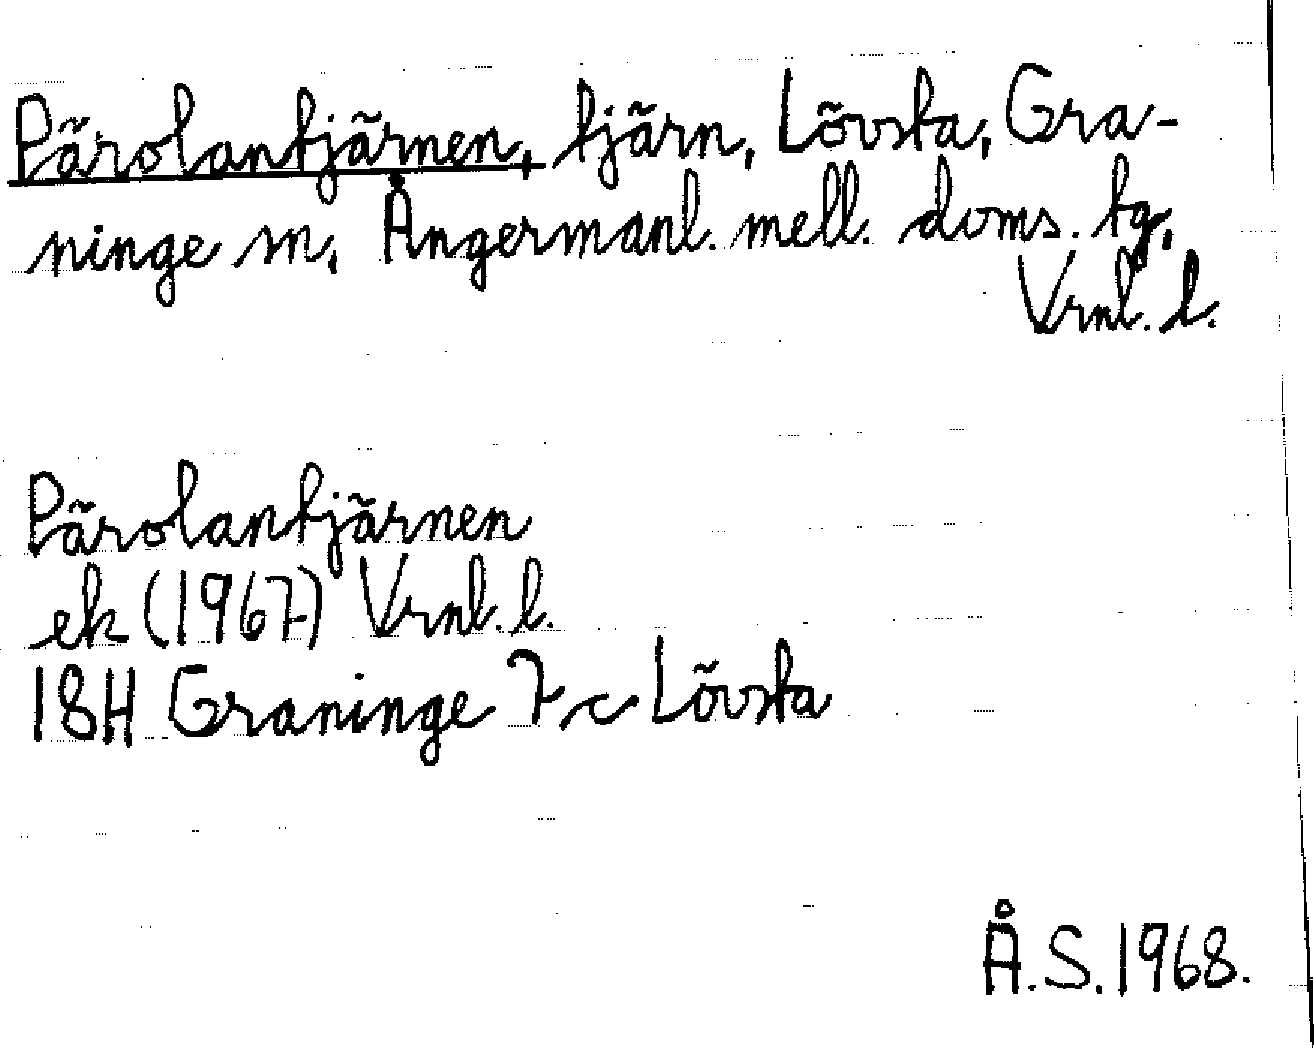 Pärolantjärnen, tjärn, Lövsta, Gra-
ninge sn, Ångermanl. mell. doms. tg,
Vrnl. l.
Pärolantjärnen
ek (1967) Vrnl. l.
18H Graninge 7 c Lövsta
Å.S. 1968.